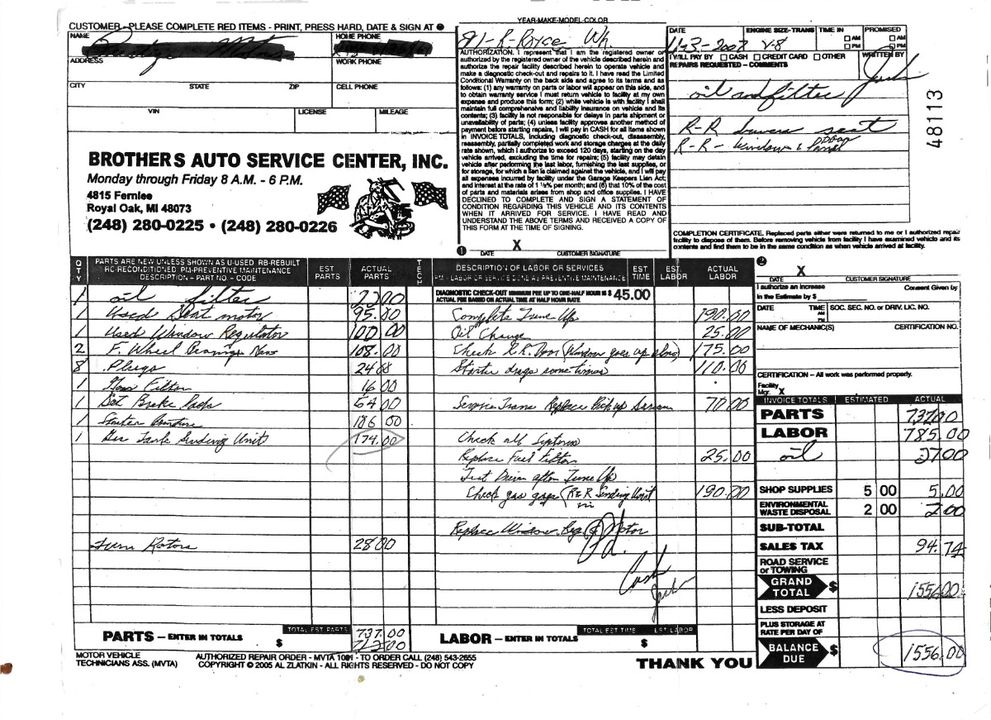 CUSTOMER - PLEASE COMPLETE RED ITEMS - PRINT, PRESS HARD, DATE & SIGN AT
NAME
HOME PHONE
ADDRESS
WORK PHONE
CITY STATE ZIP CELL PHONE
VIN LICENSE MILEAGE
BROTHERS AUTO SERVICE CENTER, INC.
Monday through Friday 8 A.M. - 6 P.M.
4815 Fernlee
Royal Oak, MI 48073
(248) 280-0225 • (248) 280-0226
YEAR-MAKE-MODEL-COLOR
91-R-Royce Wh
AUTHORIZATION. I represent that I am the registered owner or
authorized by the registered owner of the vehicle described herein and
authorize the repair facility described herein to operate vehicle and
make a diagnostic check-out and repairs to it. I have read the Limited
Conditional Warranty on the back side and agree to its terms and as
follows: (1) any warranty on parts or labor will appear on this side, and
to obtain warranty service I must return vehicle to facility at my own
expense and produce this form; (2) while vehicle is with facility I shall
maintain full comprehensive and liability insurance on vehicle and its
contents; (3) facility is not responsible for delays in parts shipment or
unavailability of parts; (4) unless facility approves another method of
payment before starting repairs, I will pay in CASH for all items shown
in INVOICE TOTALS, including diagnostic check-out, disassembly,
reassembly, partially completed work and storage charges at the daily
rate shown, which I authorize to exceed 120 days, starting on the day
vehicle arrived, excluding the time for repairs; (5) facility may detain
vehicle after performing the last labor, furnishing the last supplies, or
for storage, for which a lien is claimed against the vehicle, and I will pay
all expenses incurred by facility under the Garage Keepers Lien Act;
and interest at the rate of 1 ½% per month; and (6) that 10% of the cost
of parts and materials arises from shop and office supplies. I HAVE
DECLINED TO COMPLETE AND SIGN A STATEMENT OF
CONDITION REGARDING THIS VEHICLE AND ITS CONTENTS
WHEN IT ARRIVED FOR SERVICE. I HAVE READ AND
UNDERSTAND THE ABOVE TERMS AND RECEIVED A COPY OF
THIS FORM AT THE TIME OF SIGNING.
X
DATE CUSTOMER SIGNATURE
DATE ENGINE SIZE-TRANS TIME IN PROMISED
2007 V-8 AM PM AM PM
I WILL PAY BY CASH CREDIT CARD OTHER WRITTEN BY
REPAIRS REQUESTED - COMMENTS
oil and filter
R-R drivers seat
R-R- window & Door Panel
48113
COMPLETION CERTIFICATE. Replaced parts either were returned to me or I authorized repair
facility to dispose of them. Before removing vehicle from facility I have examined vehicle and its
contents and find them to be in the same condition as when vehicle arrived at facility.
X
DATE CUSTOMER SIGNATURE
QTY PARTS ARE NEW UNLESS SHOWN AS U-USED RB-REBUILT RC-RECONDITIONED PM-PREVENTIVE MAINTENANCE DESCRIPTION - PART NO - CODE EST PARTS ACTUAL PARTS TECH
1 oil filter
1 Used Seat motor 95.00
1 Used Window Regulator 100.00
2 F. Wheel Bearings 108.00
8 Plugs 24 00
1 Filter 16 00
1 Set Brake Pads 54 00
1 186 00
1 Gas Tank Sending Unit 174.00
Turn Rotors 28 00
TOTAL EST PARTS 737.00
PARTS - ENTER IN TOTALS $
DESCRIPTION OF LABOR OR SERVICES EST TIME EST. LABOR ACTUAL LABOR
DIAGNOSTIC CHECK-OUT MINIMUM FEE UP TO ONE-HALF HOUR IS $ 45.00
ACTUAL FEE BASED ON ACTUAL TIME AT HALF HOUR RATE
Complete Tune Up 190.00
Oil Change 25.00
Check R.R. Door (Window goes up slow) 175.00
Starter drags sometimes 110.00
Service Trans Replace Pick up Screen 70.00
Check all Systems
Replace Fuel Filter 25.00
Test Drive after Tune Up
Check gas gage (R&R Sending Unit 190.00
Replace Window Reg & Motor
Cash
TOTAL EST TIME EST LABOR
LABOR - ENTER IN TOTALS $
I authorize an increase Consent Given by
in the Estimate by $
DATE TIME AM PM SOC. SEC. NO. or DRIV. LIC. NO.
NAME OF MECHANIC(S) CERTIFICATION NO.
CERTIFICATION - All work was performed properly.
Facility
Mgr. X
INVOICE TOTALS ESTIMATED ACTUAL
PARTS 737.00
LABOR 785.00
oil 27.00
SHOP SUPPLIES 5 00 5.00
ENVIRONMENTAL WASTE DISPOSAL 2 00 2.00
SUB-TOTAL
SALES TAX 94.74
ROAD SERVICE or TOWING
GRAND TOTAL $ 1556.00
LESS DEPOSIT
PLUS STORAGE AT RATE PER DAY OF
BALANCE DUE $ 1556.00
MOTOR VEHICLE
TECHNICIANS ASS. (MVTA)
AUTHORIZED REPAIR ORDER - MVTA 1001 - TO ORDER CALL (248) 543-2655
COPYRIGHT © 2005 AL ZLATKIN - ALL RIGHTS RESERVED - DO NOT COPY
THANK YOU